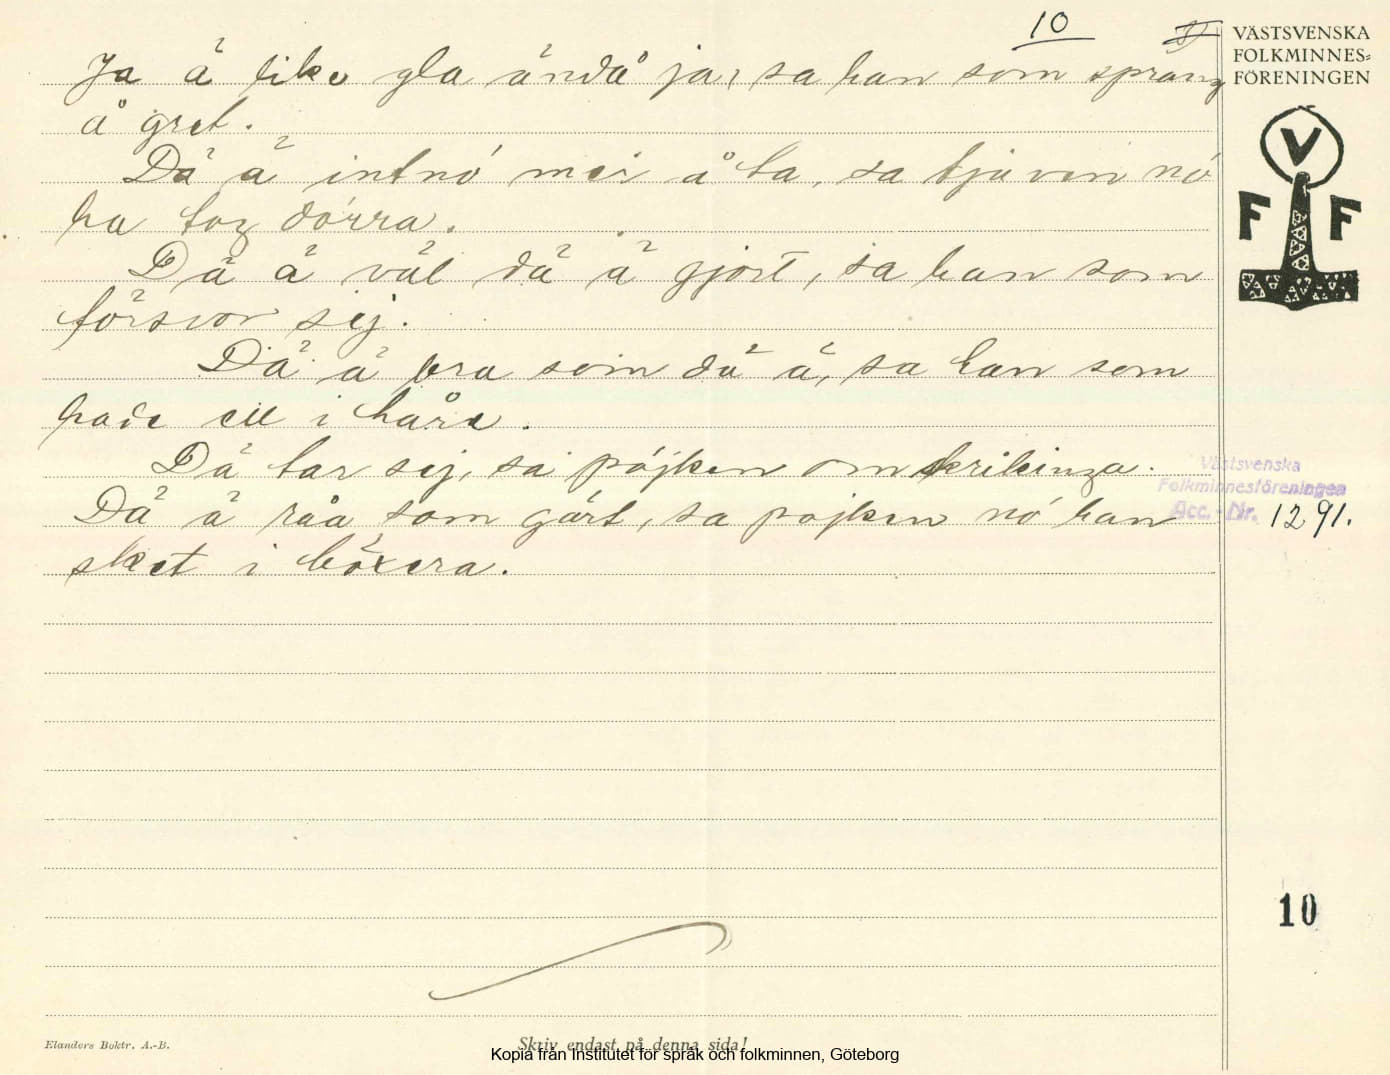 10
VÄSTSVENSKA
FOLKMINNES-
FÖRENINGEN
V
F F
Ja ä like gla ändå ja, sa han som sprang
å gret.
Dä ä intnó mer å ta, sa tjuven nó
ha tog dörra.
Dä ä väl dä ä gjort, sa han som
försvor sej.
Dä ä bra som dä ä, sa han som
hade ell i håre.
Dä tar sej, sa pójken om skrikinga.
Dä ä råa som gårt, sa pojken nó han
sket i böxera.
Västsvenska
Folkminnesföreningen
Acc. - Nr. 1291.
10
Elanders Boktr. A.-B.
Skriv endast på denna sida!
Kopia från Institutet för språk och folkminnen, Göteborg